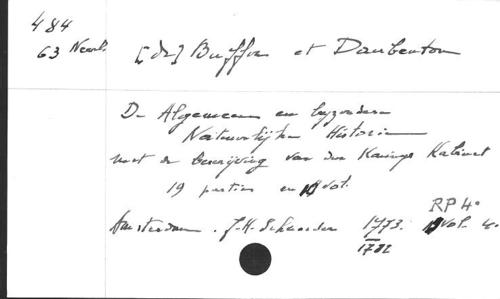 484
63 Neerl. [de] Buffon et Daubenton
De Algemeene en byzondere
Natuurlijke Historie
met de Beschrijving van des Konings Kabinet
19 parties en vol.
RP 4°
Amsterdam. J.H. Schneider 1773. vol. 4°
1782